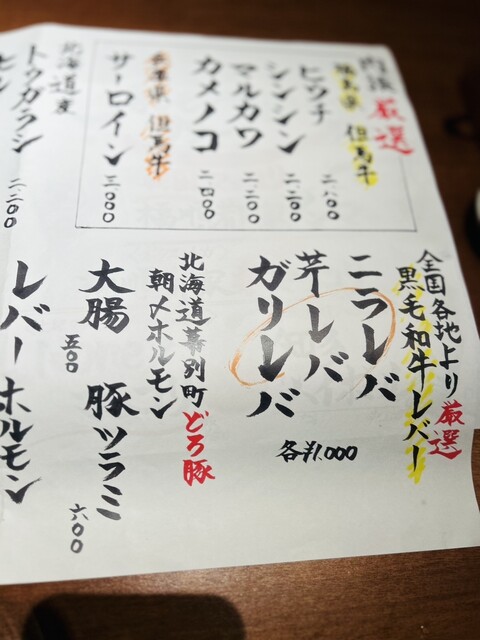 厳選
但馬牛
ヒウチ 二.八〇〇
シンシン 二.二〇〇
マルカワ 二.二〇〇
カメノコ 二.四〇〇
兵庫県 但馬牛
サーロイン 三.〇〇〇
北海道産
トウガラシ 二.二〇〇
全国各地より厳選
黒毛和牛レバー
ニラレバ
芹レバ
ガリレバ
各¥1,000
北海道幕別町どろ豚
朝〆ホルモン
大腸 五〇〇
豚ツラミ 六〇〇
レバーホルモン